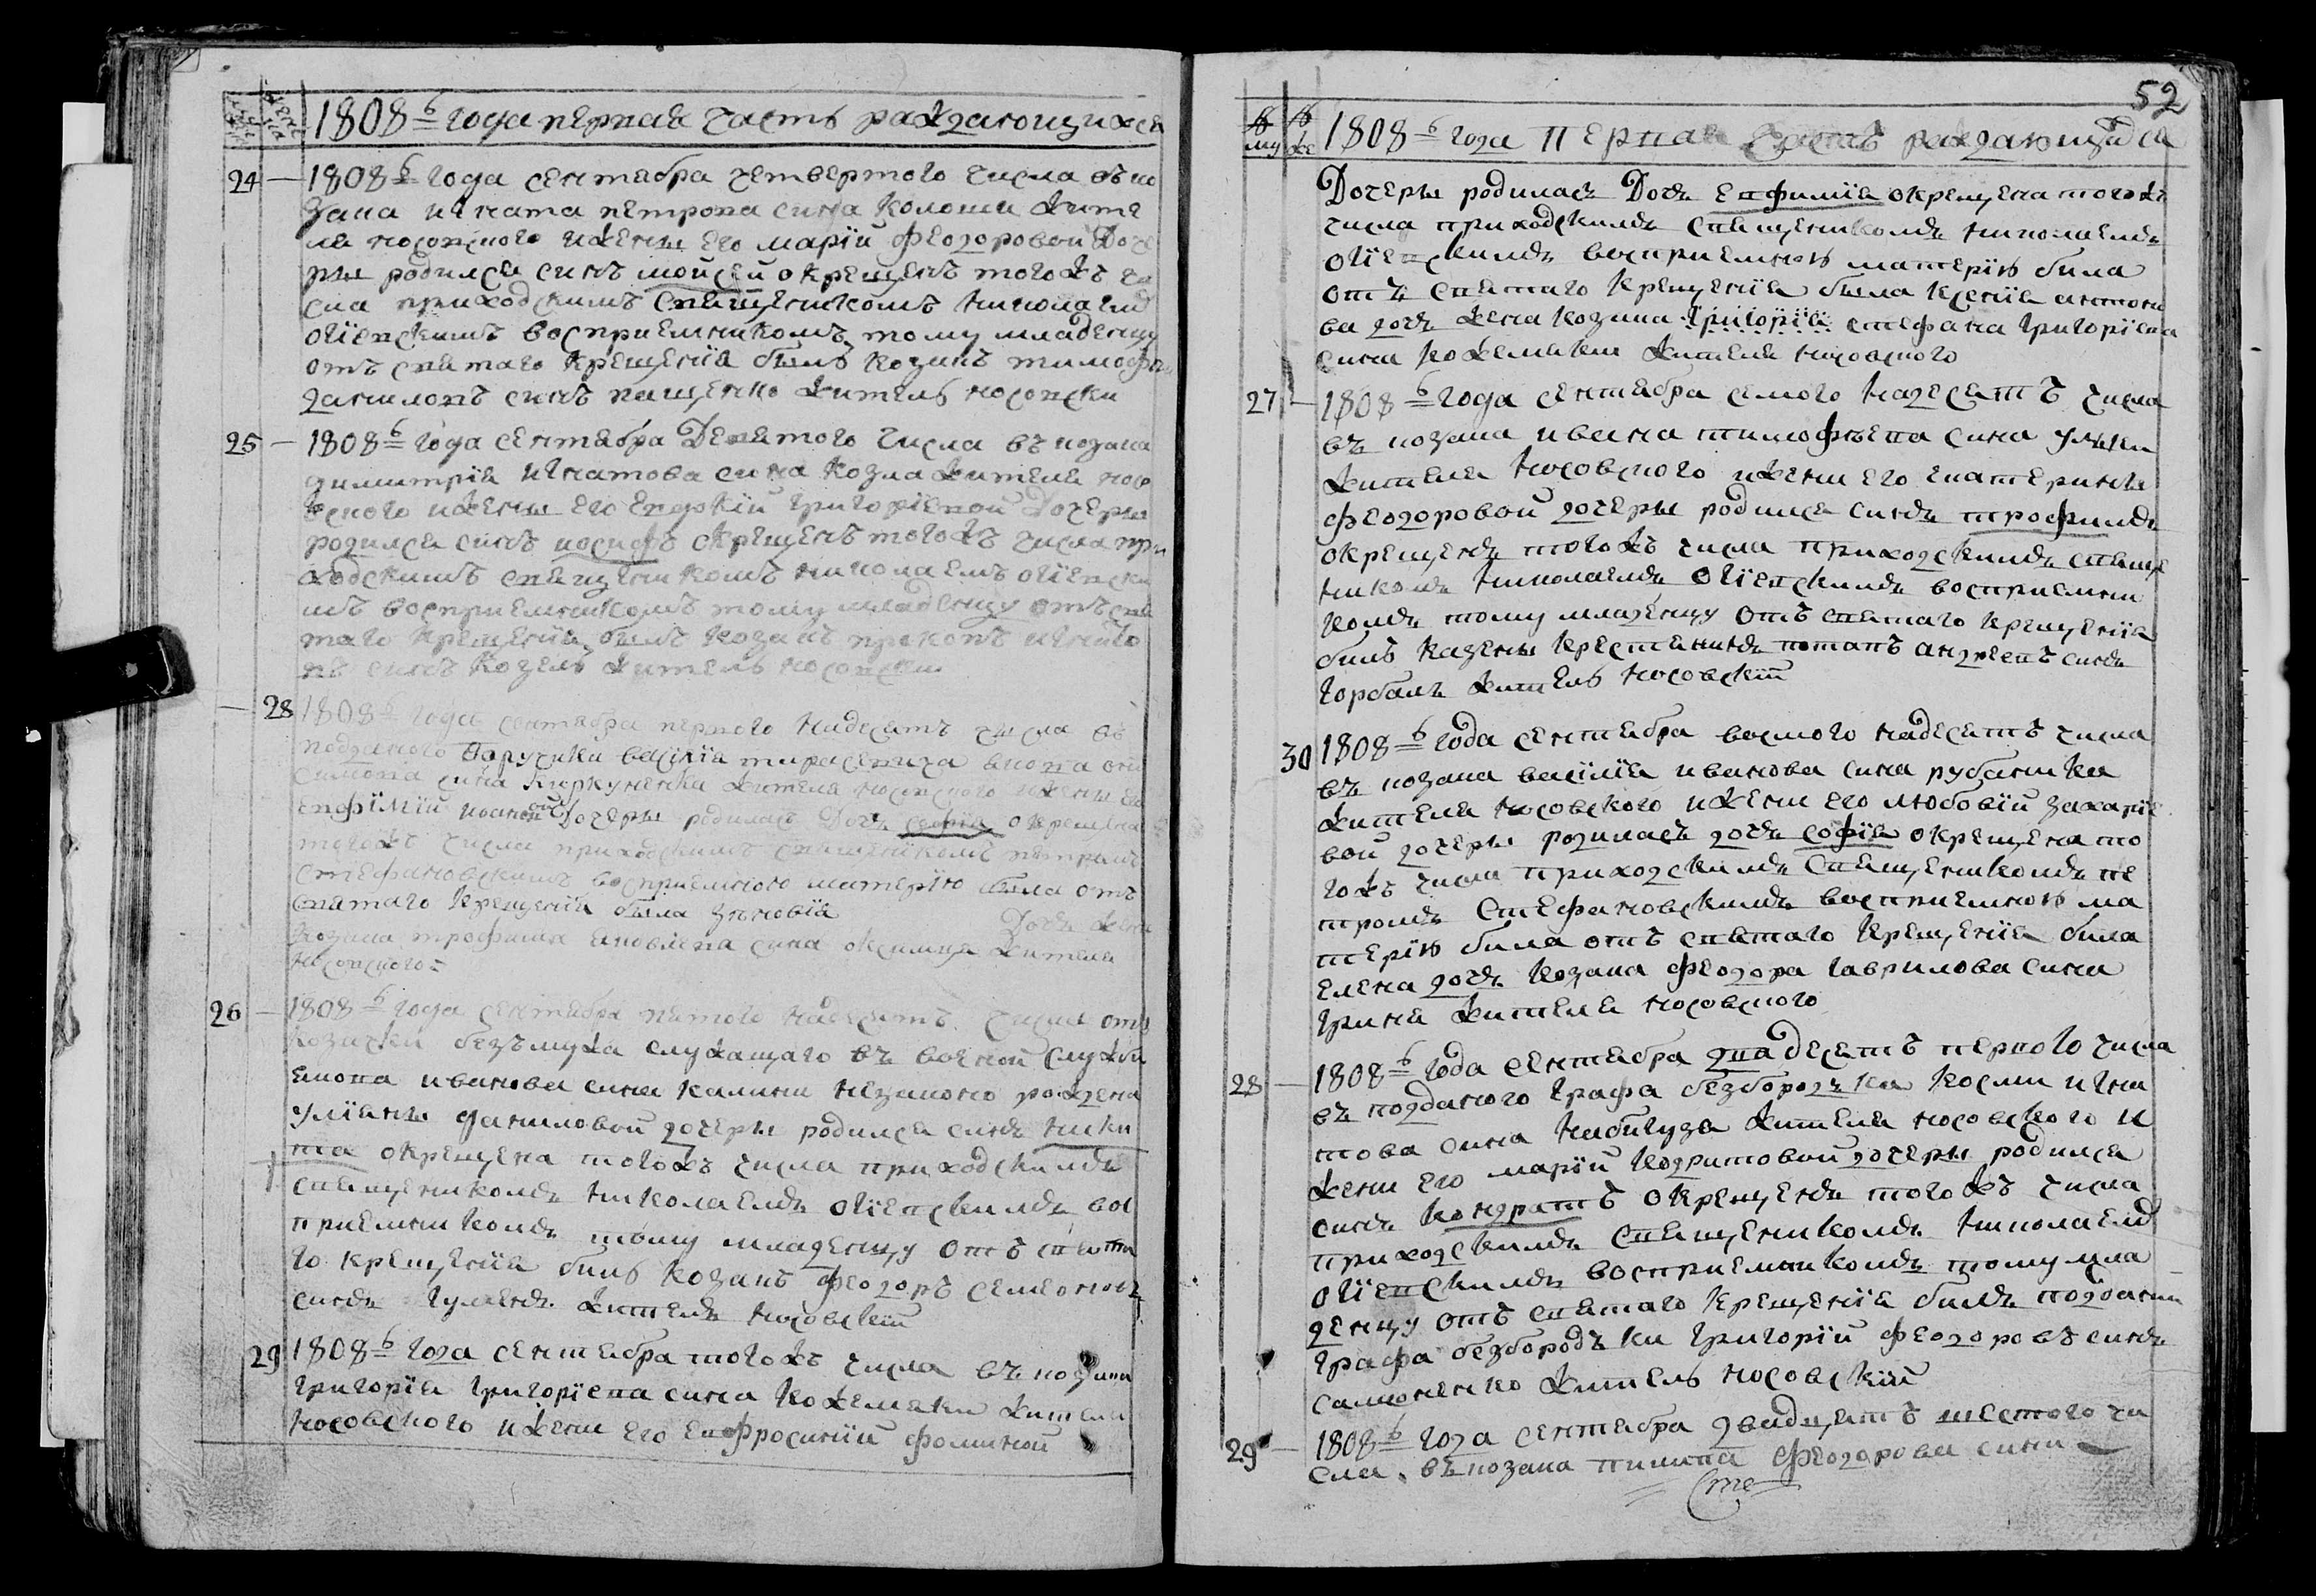 1808 г̃ года первая часть раждающихся
24 — 1808 г̃ года сентября четвертого числа въ ко
зака Игната петрова сина Колоши жите
ля носовского и жены его марїи феодоровой Доче
ры родился синъ мойсей окрещенъ того жъ чи
сла приходскимъ священикомъ николаем
огїевскимъ восприемникомъ тому младенцу
отъ святаго крещенїя былъ козакъ тимофей
даниловъ синъ пащенко житель носовски
25 — 1808 г̃ года сентября Девятого числа въ козака
димитрїя игнатова сина Козла жителя носо
вского и жены его Евдокїи григорїевой Дочеры
родился синъ иосифъ окрещенъ того жъ числа при
ходскимъ священикомъ николаемъ огїевски
мъ восприемникомъ тому младенцу отъ свя
таго крещенїя былъ козакъ прокопъ игнато
въ синъ Козелъ житель носовски
— 28 1808 г̃ года сентября первого надесять числа въ
подданого Поручика василїя тарасевича
симона сина жителя носовского и жены его
евфїмїи ивановой Дочеры родилась Дочь софїя окрещена
того жъ числа приходскимъ священїкомъ петромъ
стефановскимъ восприемною матерїю была отъ
святаго крещенїя была зѣновїя Дочь жена
козака трофима сина жителя
носовского
26 — 1808 г̃ года сентября пятого надесять числа отъ
козачки безъ мужа служащаго въ военой службы
якова иванова сина калини незаконо рождена
улїяны даниловой дочеры родился синъ ники
та окрещена того жъ числа приходскимъ
священикомъ николаемъ огїевскимъ вос
приемникомъ тому младенцу отъ свята
го крещенїя билъ козакъ феодоръ семеоновъ
синъ житель носовскїй
29 1808 г̃ года сентября того жъ числа въ козака
григорїя григорїева сина Кожемяки жителя
носовского и жени его Евфросинїи фоминой
52
му же 1808 г̃ года первая часть раждающихся
Дочеры родилась Дочь евфимїя окрещена того жъ
числа приходскимъ священикомъ николаемъ
огїевскимъ восприемною матерїю била
отъ святаго крещенїя была Ксенїя антоно
ва дочь жена козака григорїя стефана григорїева
сина кожемяки жителя носовского
27 — 1808 г̃ года сентября семого надесять числа
въ козака ивана тимофѣева сина
жителя носовского и жени его екатерины
феодоровой дочеры родился синъ трофимъ
окрещенъ того жъ числа приходскимъ свяще
никомъ николаемъ огїевскимъ восприемни
комъ тому младенцу отъ святаго крещенїя
билъ казены крестянинъ потапъ андреевъ синъ
горбачъ житель носовскїй
30 1808 г̃ года сентября восмого надесять числа
въ козака василїя иванова сина рубаника
жителя носовского и жени его любовїи захарїе
вой дочеры родилась дочь софїя окрещена то
го жъ числа приходскимъ священикомъ пе
тромъ стефановскимъ восприемною ма
терїю била отъ святаго крещенїя била
елена дочь козака феодора гаврилова сина
грина жителя носовского
28 — 1808 г̃ года сентября двадесять первого числа
въ подданого графа безбородька косми игна
това сина жителя носовского и
жени его марїи кодратовой дочеры родился
синъ кондратъ окрещенъ того жъ числа
приходскимъ священикомъ николаем
огїевскимъ восприемникомъ тому мла
денцу отъ святаго крещенїя билъ подданий
графа безбородьки григорїй феодоровъ синъ
самоненко житель носовскїй
29 — 1808 г̃ года сентября двадцять шестого чи
сла въ козака пилипа феодорова сина